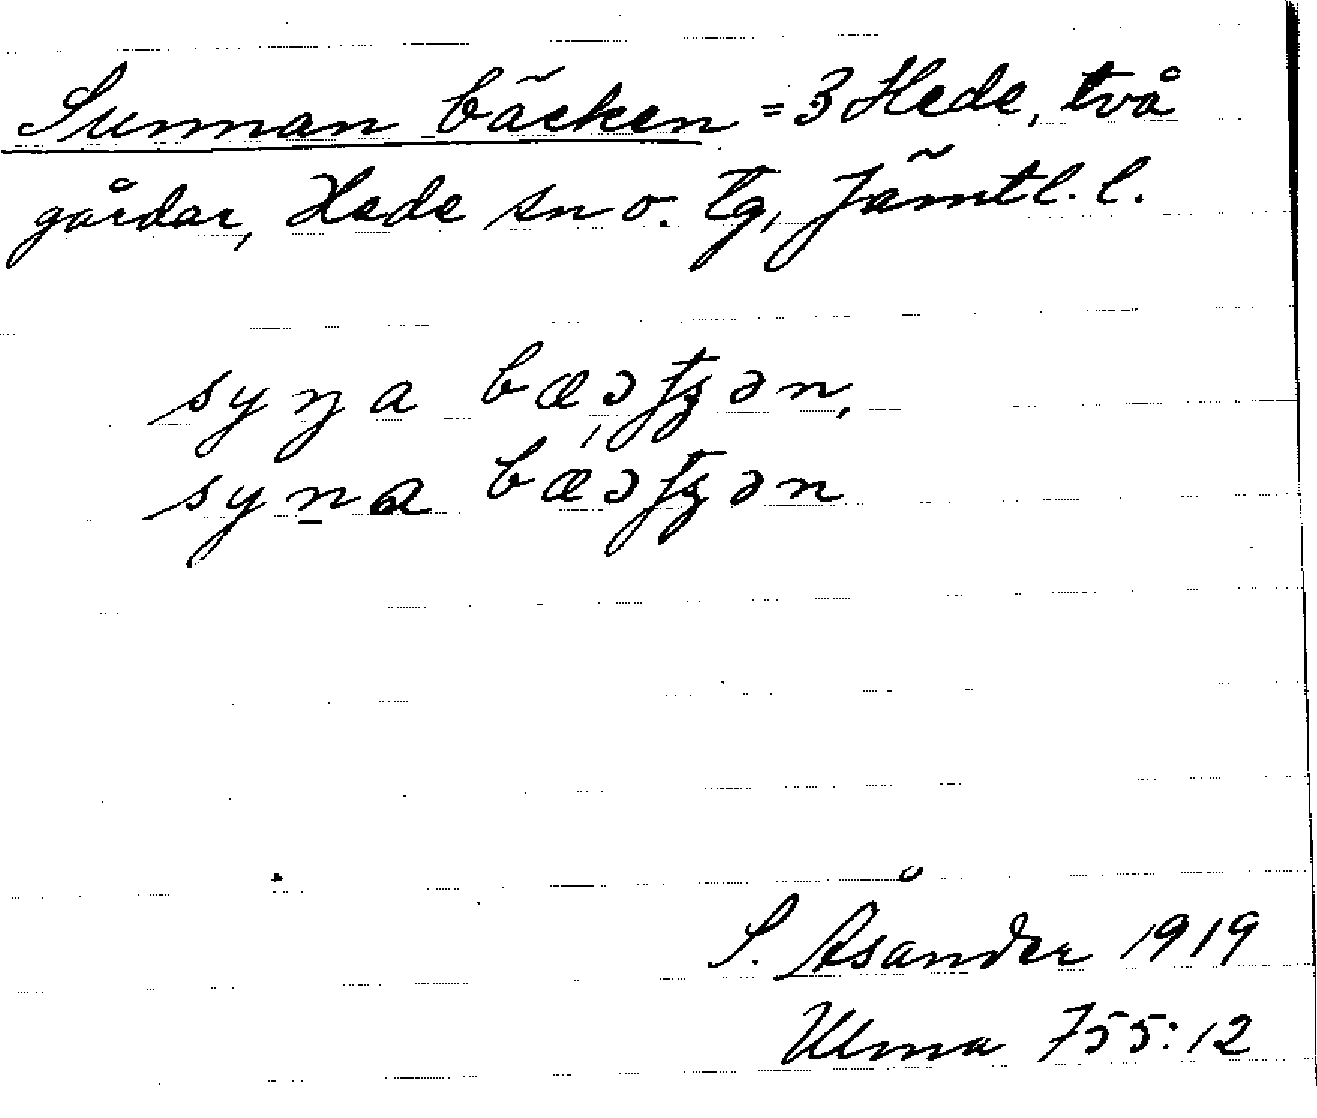 Sunnan bäcken = 3 Hede, två
gårdar, Hede sn o. tg, Jämtl. l.
syŋa
syna
S. Åsander 1919
Ulma 755:12